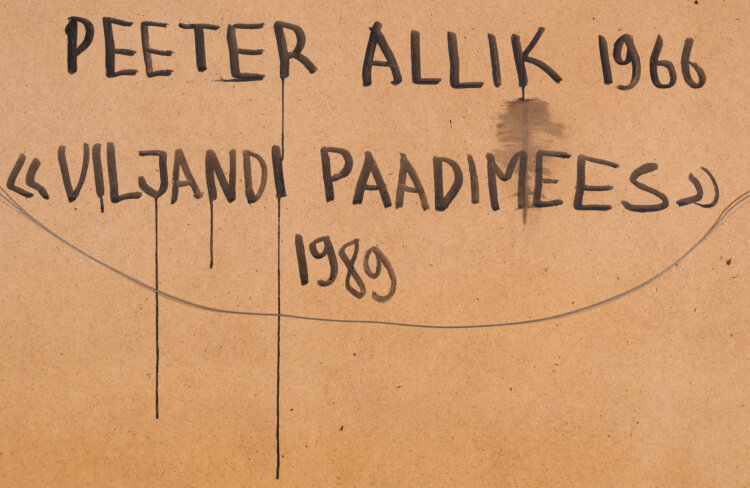 PEETER ALLIK 1966
«VILJANDI PAADIMEES»
1989